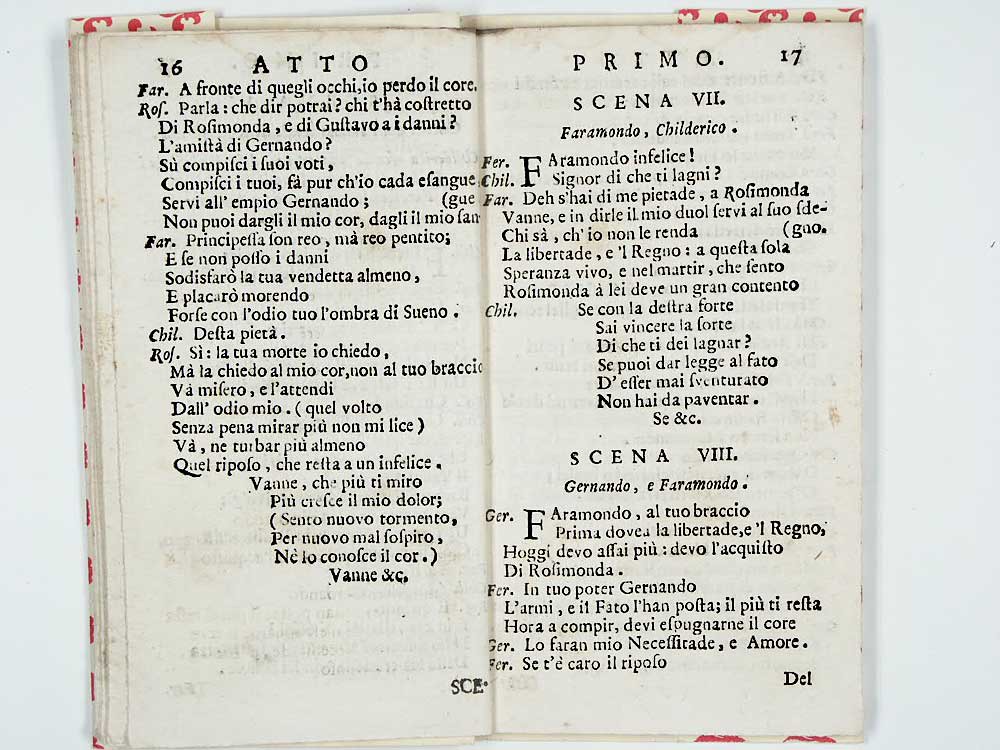 16 ATTO
Far. A fronte di quegli occhi, io perdo il core.
Ros. Parla: che dir potrai? chi t'hà costretto
Di Rosimonda, e di Gustavo a i danni?
L'amistà di Gernando?
Sù compisci i suoi voti,
Compisci i tuoi, fà pur ch'io cada esangue
Servi all' empio Gernando; (gue
Non puoi dargli il mio cor, dagli il mio san-
Far. Principessa son reo, mà reo pentito;
E se non posso i danni
Sodisfarò la tua vendetta almeno,
E placarò morendo
Forse con l'odio tuo l'ombra di Sueno.
Chil. Desta pietà.
Ros. Sì: la tua morte io chiedo,
Mà la chiedo al mio cor, non al tuo braccio
Và misero, e l'attendi
Dall' odio mio. (quel volto
Senza pena mirar più non mi lice)
Và, ne turbar più almeno
Quel riposo, che resta a un infelice.
Vanne, che più ti miro
Più cresce il mio dolor;
(Sento nuovo tormento,
Per nuovo mal sospiro,
Nè lo conosce il cor.)
Vanne &c.
SCE-
PRIMO. 17
SCENA VII.
Faramondo, Childerico.
Fer. FAramondo infelice!
Chil. Signor di che ti lagni?
Far. Deh s'hai di me pietade, a Rosimonda
Vanne, e in dirle il mio duol servi al suo sde-
Chi sà, ch' io non le renda (gno.
La libertade, e 'l Regno: a questa sola
Speranza vivo, e nel martir, che sento
Rosimonda à lei deve un gran contento
Chil. Se con la destra forte
Sai vincere la sorte
Di che ti dei lagnar?
Se puoi dar legge al fato
D' esser mai sventurato
Non hai da paventar.
Se &c.
SCENA VIII.
Gernando, e Faramondo.
Ger. FAramondo, al tuo braccio
Prima dovea la libertade, e 'l Regno,
Hoggi devo assai più: devo l'acquisto
Di Rosimonda.
Fer. In tuo poter Gernando
L'armi, e il Fato l'han posta; il più ti resta
Hora a compir, devi espugnarne il core
Ger. Lo faran mio Necessitade, e Amore.
Fer. Se t'è caro il riposo
Del